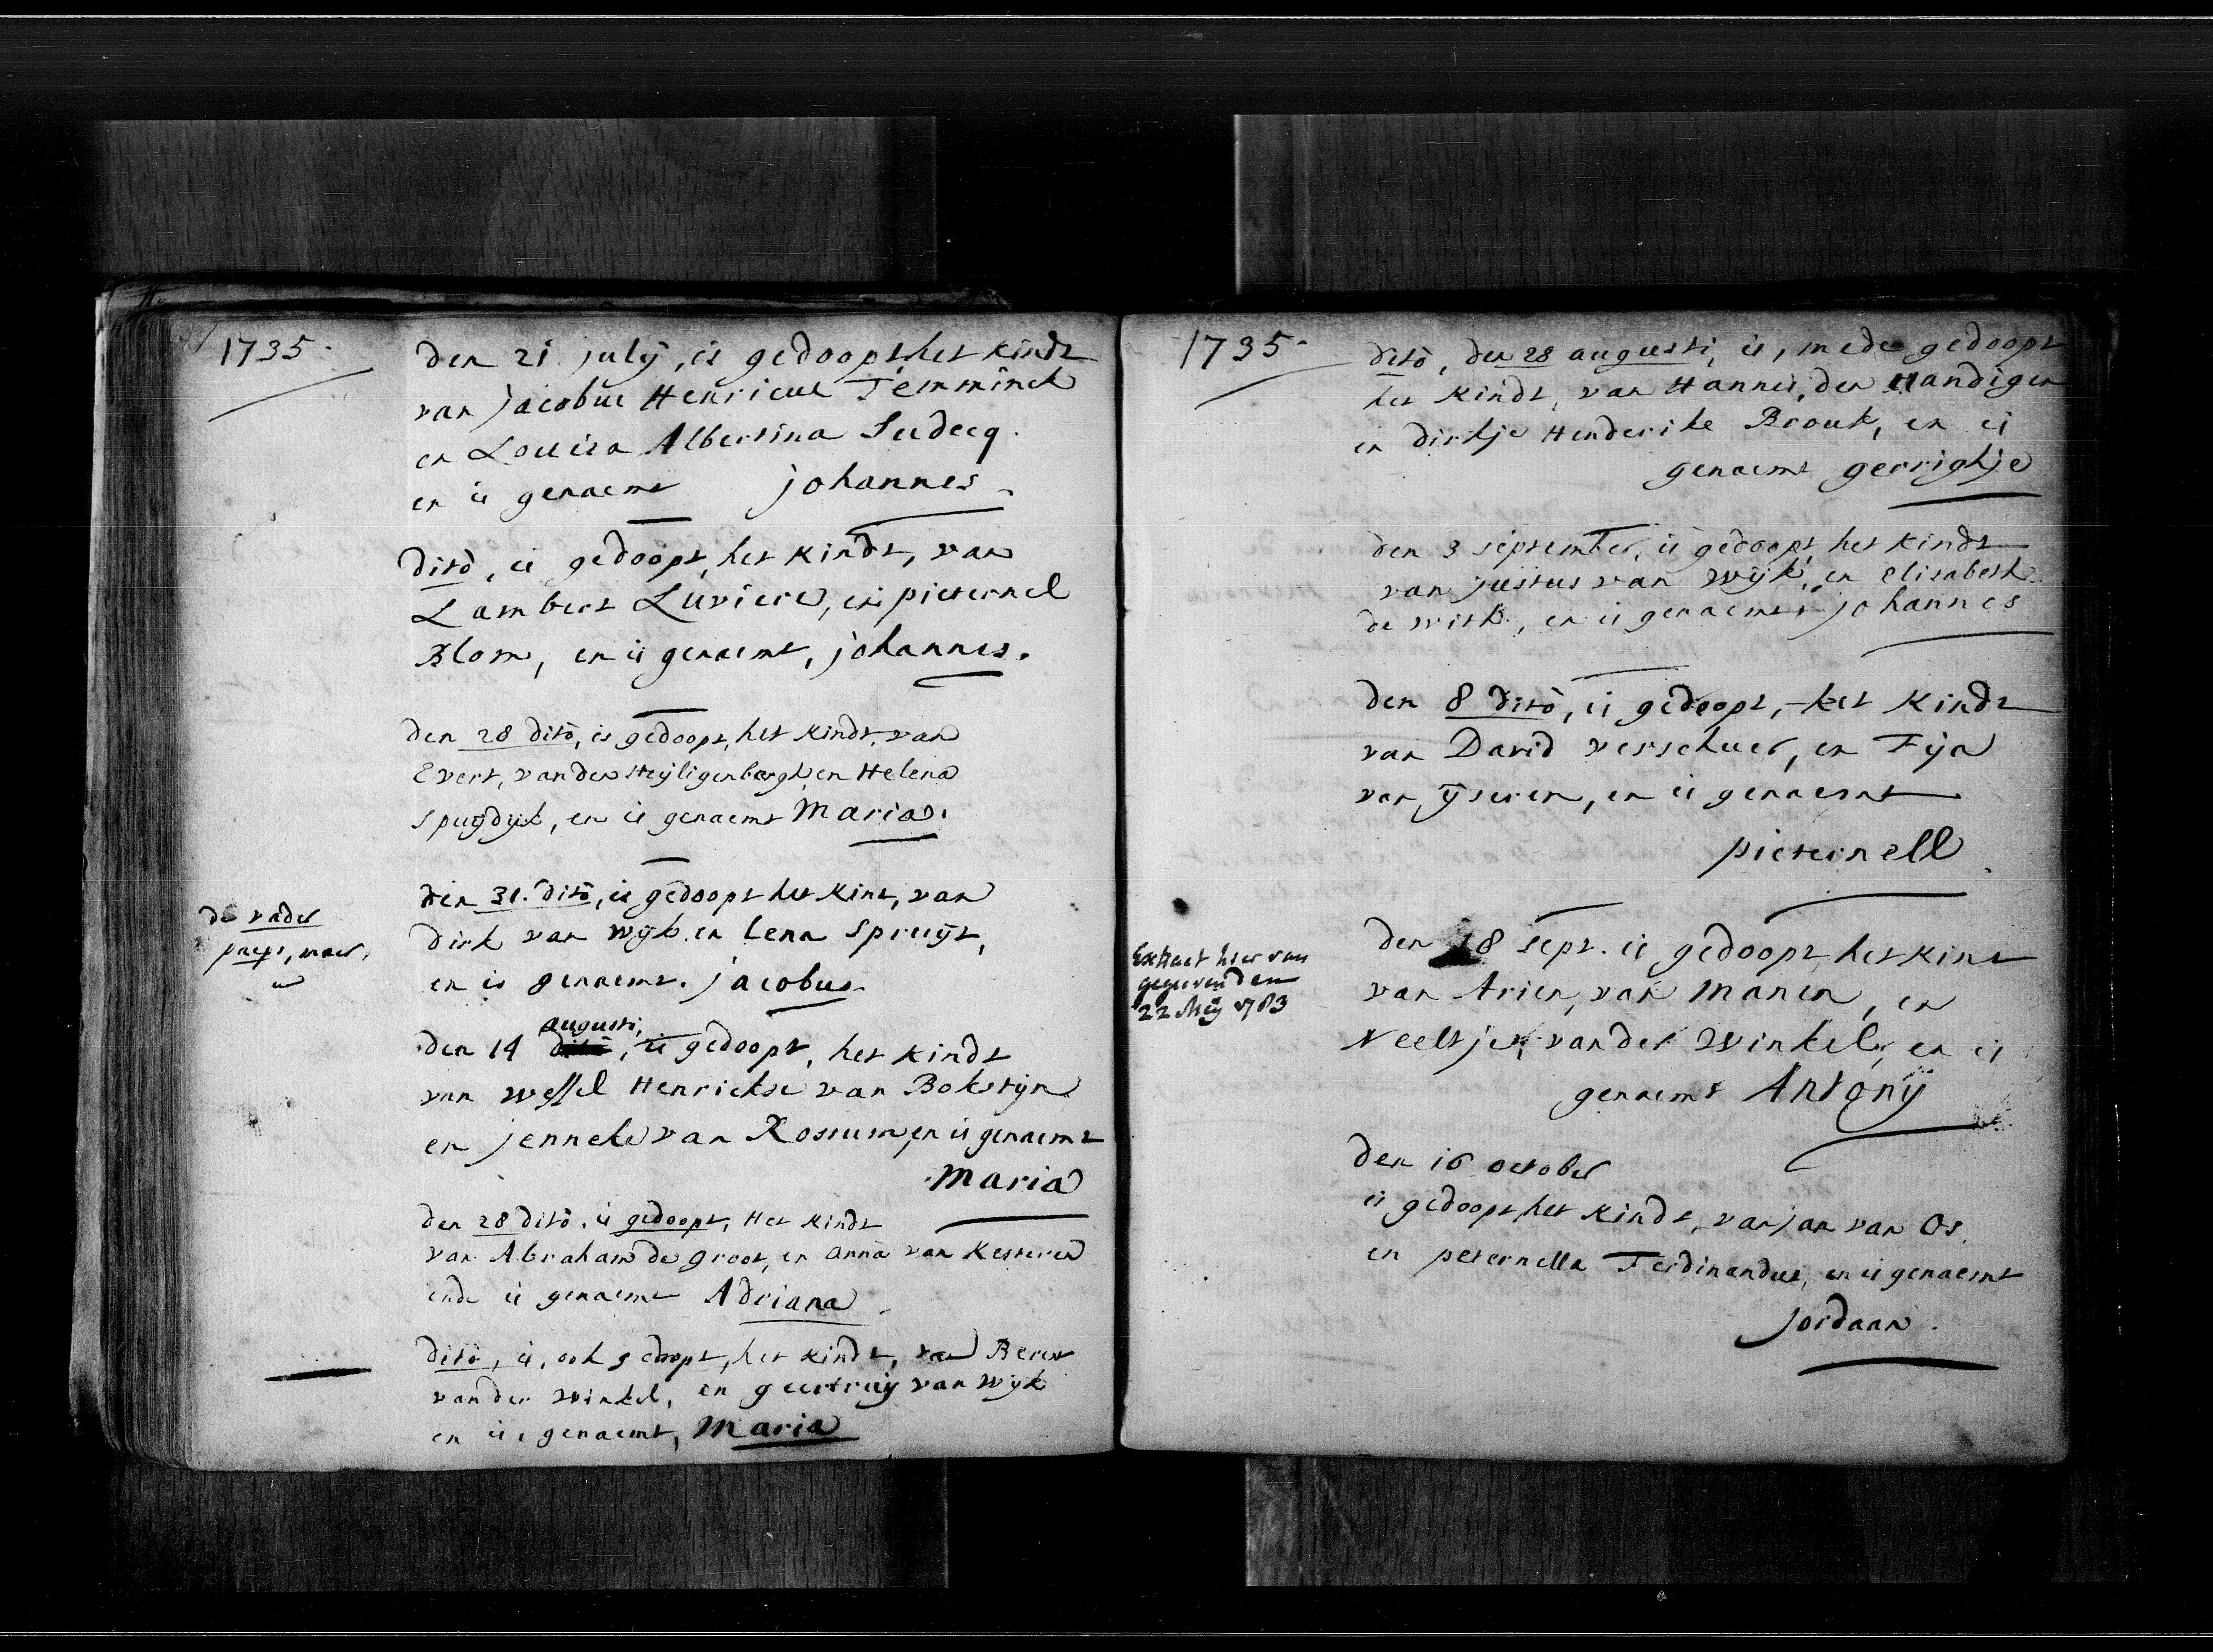 1735.
den 21 july, is gedoopt het kindt
van Jacobus Henricus Temminck
en Louisa Albertina Ludecq.
en is genaemt johannes.
ditò, is gedoopt, het kindt, van
Lambert Luviere, en pieternel
Blom, en is genaemt, johannes.
den 28 ditò, is gedoopt, het kindt, van
Evert, van den Heyligenbergh, en Helena
Spuydyk, en is genaemt Maria.
de vader
paeps, maer,
den 31. ditò, is gedoopt het kint, van
Dirk van Wyk en Lena Spruyt,
en is genaemt. jacobus.
augusti,
den 14 ditò, is gedoopt, het kindt
van Wessel Henrickse van Bokstyn
en jenneke van Rossum, en is genaemt
Maria
den 28 ditò. is gedoopt, Het kindt
van Abraham de groot, en anna van Kesteren
ende is genaemt Adriana.
ditò, is, ook gedoopt, het kindt, van Berent
van der Winkel, en geertruij van Wyk
en is, genaemt, Maria
1735.
ditò, den 28 augusti, is, mede gedoopt
het kindt, van Hannes, den Handigen
en dirkje Henderike Brouk, en is
genaemt gerrigtje
den 3 september, is gedoopt, het kindt
van justus van Wÿk, en elisabeth
de With, en is genaemt, johannes
den 8 ditò, is gedoopt, het kindt
van David verschuer, en Fija
van ÿseren, en is genaemt
pieternell
Extract hier van
gegeven den
22 Meÿ 1783
den 18 sept. is gedoopt, het kint
van Arien, van Manen, en
Neeltje, van der Winkel, en is
genaemt Antonÿ
den 16 october
is gedoopt, het kindt, van jan van Os.
en peternella Ferdinandus, en is genaemt
Jordaan.